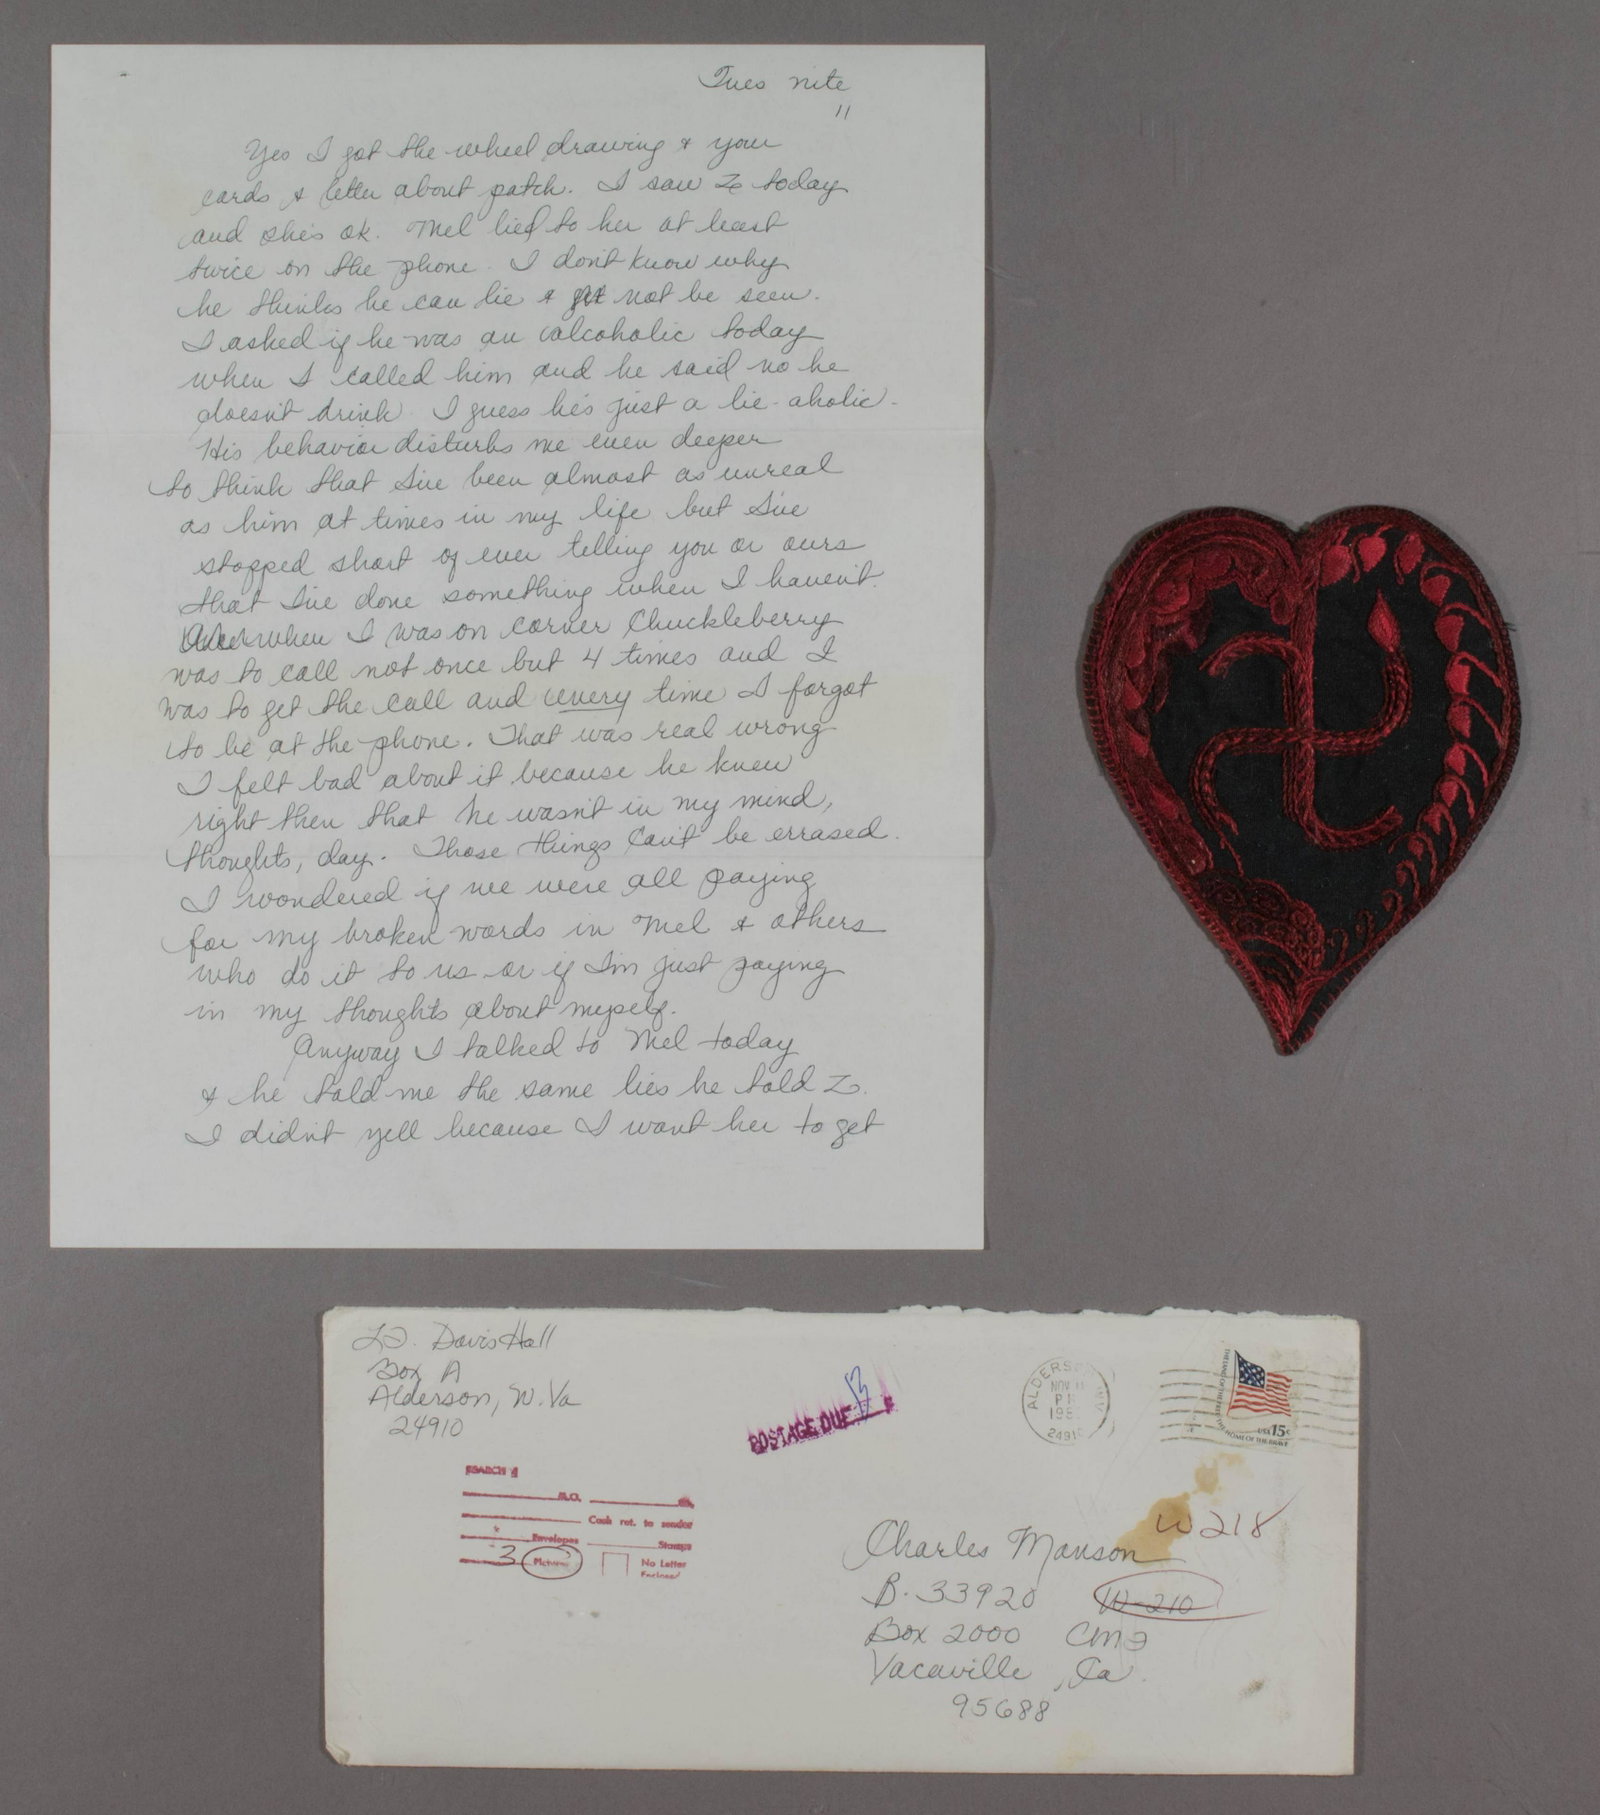 Tues nite
11
Yes I got the wheel drawing & your
cards & letter about patch. I saw Z today
and she's ok. Mel lied to her at least
twice on the phone. I don't know why
he thinks he can lie & not be seen.
I asked if he was an alcoholic today
when I called him and he said no he
doesn't drink. I guess he's just a lie-aholic.
His behavior disturbs me even deeper
to think that I've been almost as unreal
as him at times in my life but I've
stopped short of ever telling you or ours
that I've done something when I haven't.
when I was on corner Chuckleberry
was to call not once but 4 times and I
was to get the call and every time I forgot
to be at the phone. That was real wrong
I felt bad about it because he knew
right then that he wasn't in my mind,
thoughts, day. Those things can't be errased.
I wondered if we were all paying
for my broken words in Mel & others
who do it to us or if I'm just paying
in my thoughts about myself.
Anyway I talked to Mel today
& he told me the same lies he told Z.
I didn't yell because I want her to get
Davis Hall
Box A
Alderson, W. Va
24910
POSTAGE DUE 13
ALDERSON WV
NOV
PM
24910
THE LAND OF THE FREE THE HOME OF THE BRAVE
USA 15c
SEARCH
M.O.
Cash ret. to sender
Envelopes Stamps
3 Pictures No Letter
Enclosed
Charles Manson W218
B-33920 W-210
Box 2000 CMF
Vacaville, Ca.
95688